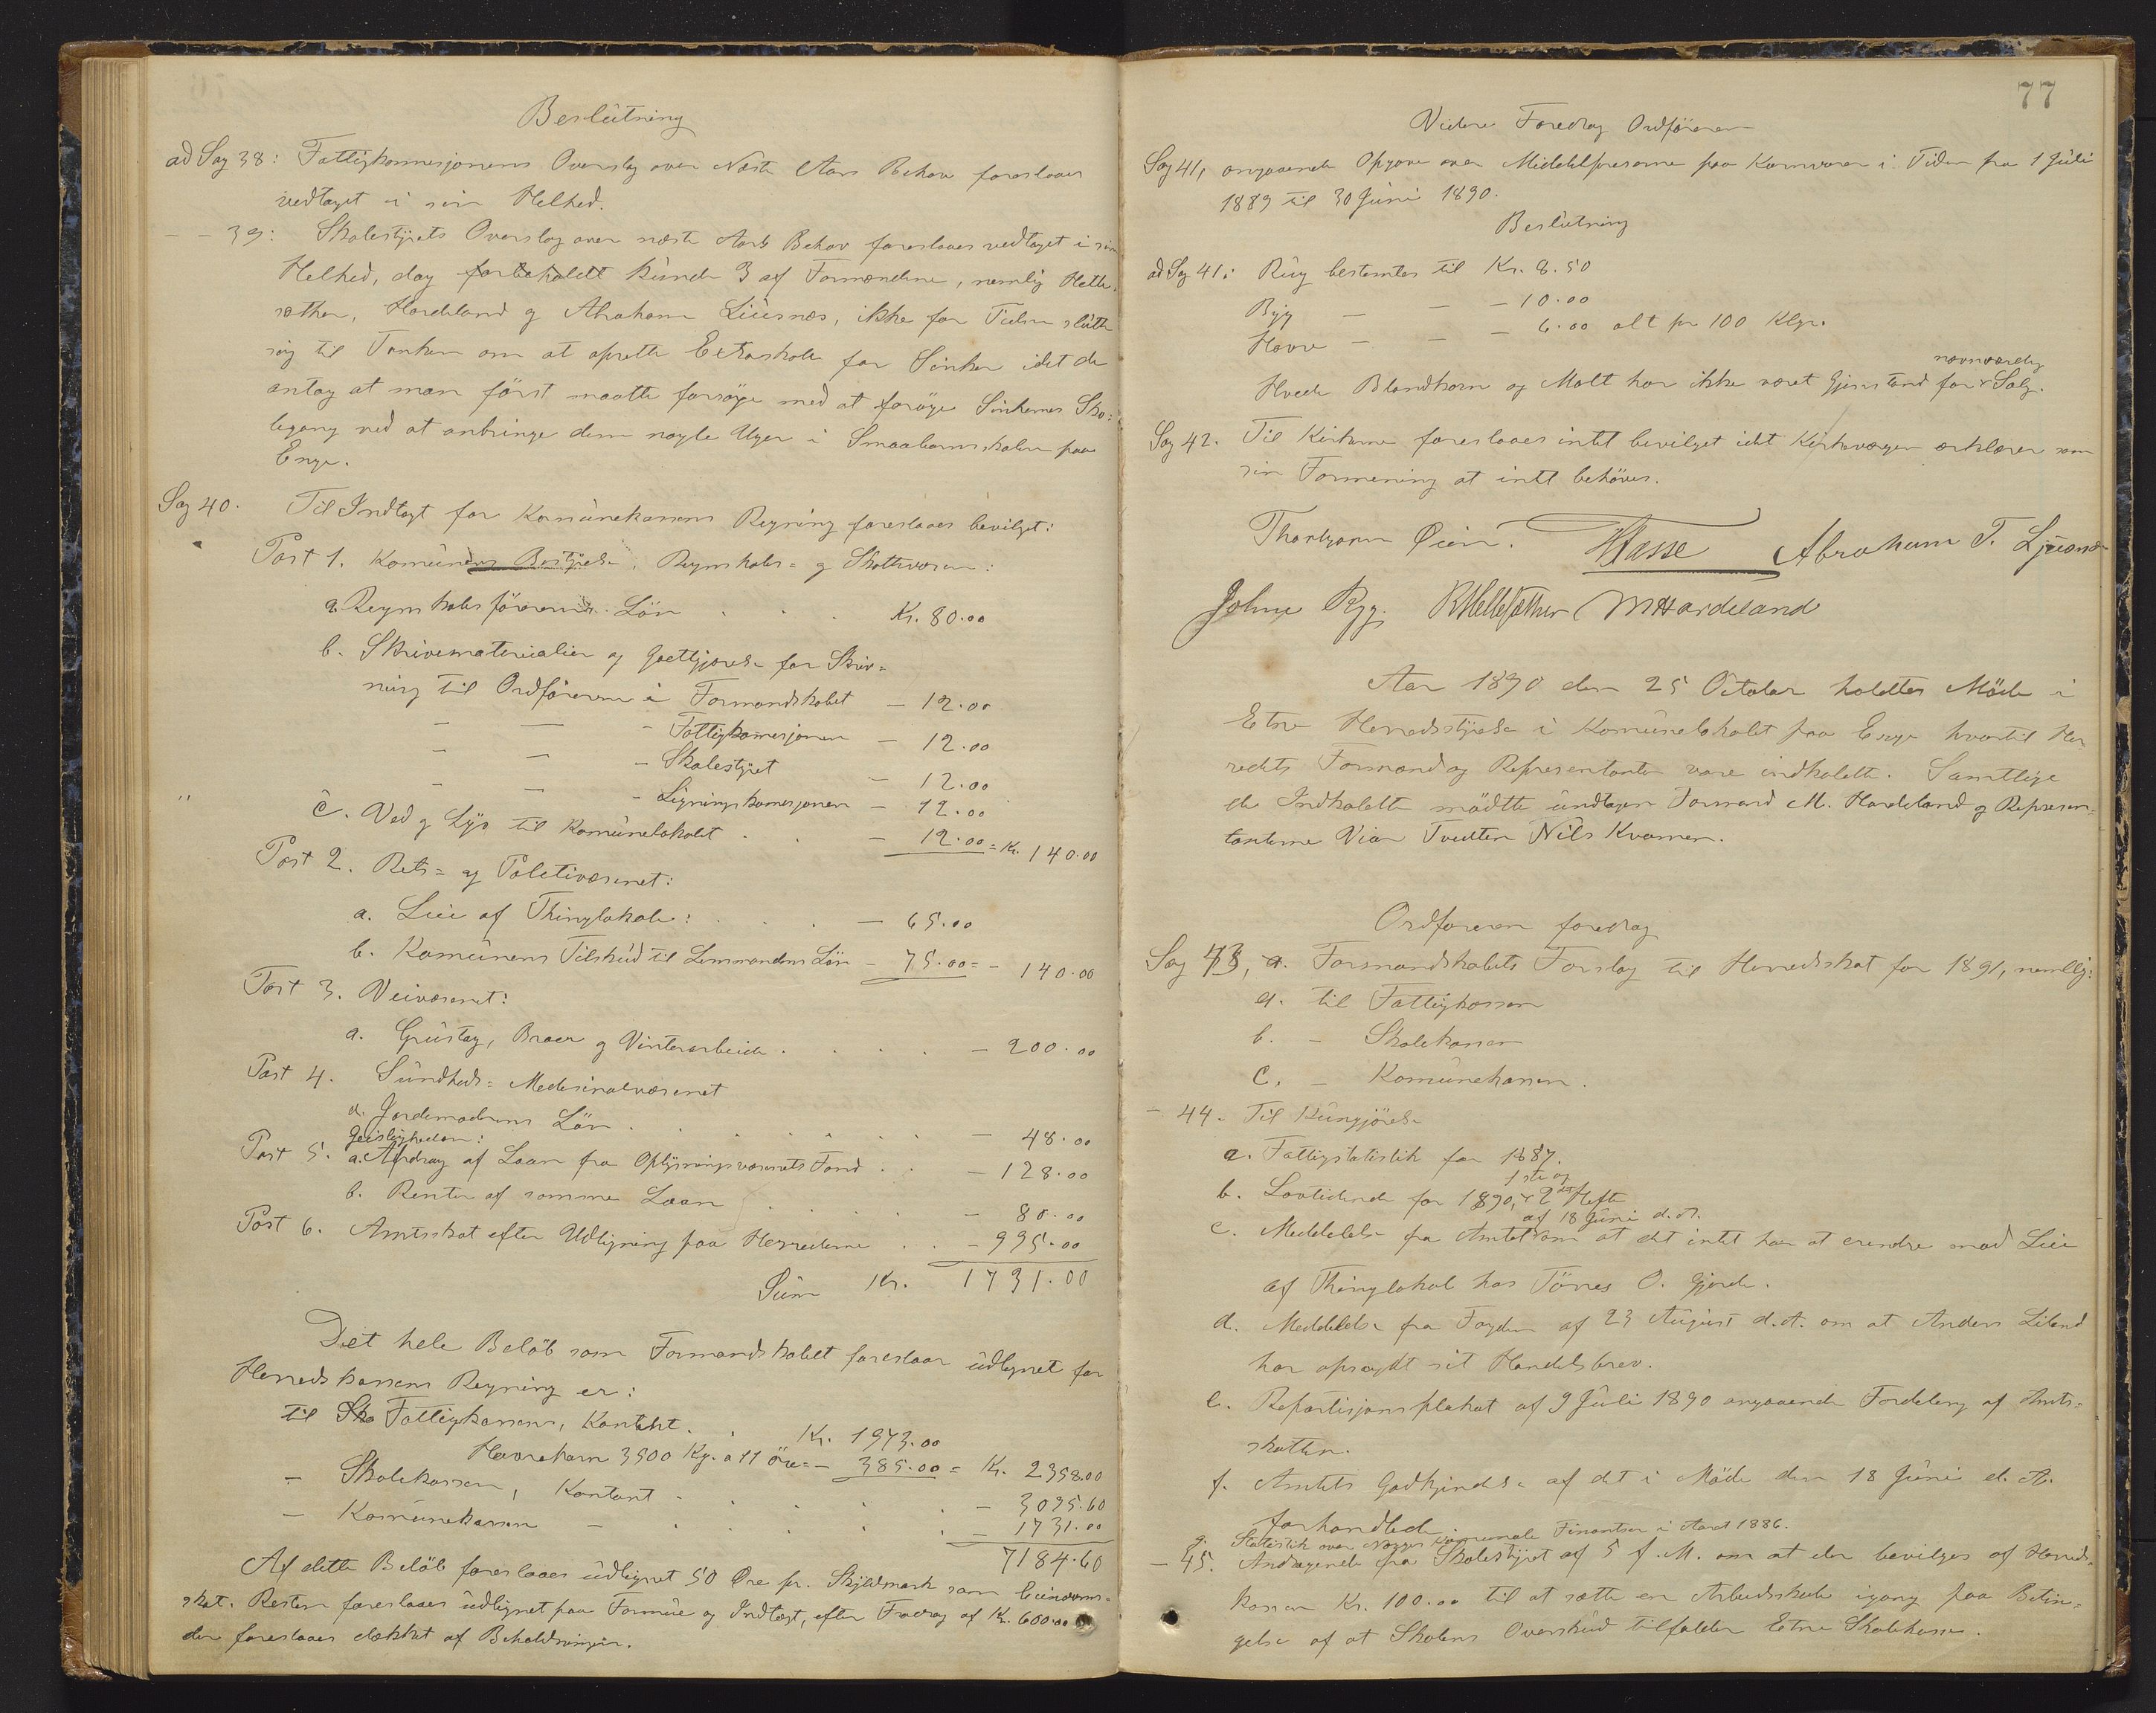 Beslutning
ad Sag 38: Fattigkommisjonens Overslag over Næste Aars Behov foreslaaes
vedtaget i sin Helhed.
— — 39: Skolestyrets Overslag over næste Aars Behov foreslaaes vedtaget i sin
Helhed, dog forbeholdt kunde 3 af Formændene, nemlig Helle-
sæther, Hardeland og Abraham Liusnæs, ikke for Tiden slutte
sig til Tanken om at oprette Extraskole for Sinker idet de
antog at man först maatte forsøge med at forøge Sinkernes Sko=
legang ved at anbringe dem nogle Uger i Smaabarnsskolen paa
Enge.
Sag 40. Til Indtægt for Komünekassens Regning foreslaaes bevilget:
Post 1. Komünens Bestyrelse, Regnskabs= og Skattevæsen:
a. Regnskabsförerens Lön . . . Kr. 80.00
b. Skrivematerialier og Godtgjørelse for Skriv=
ning til Ordföreren i Formandskabet — 12.00
— — — Fattigkomisjonen — 12.00
— — — Skolestyret — 12.00
— — — Ligningskomisjonen — 12.00
c. Ved og Lys til Komünelokalet . . — 12.00 = Kr. 140.00
Post 2. Rets= og Politivæsenet:
a. Leie af Thinglokale: . . . — 65.00
b. Komünens Tilskud til Lensmandens Lön — 75.00 = — 140.00
Post 3. Veivæsenet:
a. Grustag, Broer og Vinterarbeide . . . . — 200.00
Post 4. Sündheds= Medesinalvæsenet
a. Jordemoderens Lön . . . . . . . — 48.00
Geistligheden:
Post 5. a. Afdrag af Laan fra Oplysningsvæsenets Fond . . — 128.00
b. Renter af samme Laan . . . . . — 80.00
Post 6. Amtsskat efter Udligning paa Herrederne . . — 995.00
Süm Kr. 1731.00
Det hele Beløb som Formandskabet foreslaar udlignet for
Herredskassens Regning er:
til Fattigkassen, Kontant . . Kr. 1973.00
Havrekorn 3500 Kg. a 11 Öre = — 385.00 = Kr. 2358.00
— Skolekassen, Kontant . . . . . — 3095.60
— Komünekassen — . . . . . — 1731.00
7184.60
Af dette Beløb foreslaaes udlignet 50 Øre pr. Skyldmark som Eiendoms=
skat. Resten foreslaaes udlignet paa Formue og Indtægt, efter Fradrag af Kr. 600.00
der foreslaaes dækket af Beholdningen.
77
Videre Foredrog Ordföreren
Sag 41, angaaende Opgave over Middelpriserne paa Kornvarer i Tiden fra 1 Juli
1889 til 30 Juni 1890.
Beslutning
ad Sag 41: Rug bestemtes til Kr. 8.50
Byg — — — 10.00
Havre — — — 6.00 alt pr 100 Klgr.
nævneværdig
Hvede Blandkorn og Malt har ikke været Gjenstand for Salg.
Sag 42. Til Kirkerne foreslaaes intet bevilget idet Kirkeværgen erklærer som
sin Formening at intet behöves.
Thorbjørn Øien. Hasse Abraham T. Ljusnæs
Johne Ryg. RHellesæther MHardeland
Aar 1890 den 25 October holdtes Möde i
Etne Herredsstyrelse i Komünelokalet paa Enge hvortil Her
redets Formænd og Representanter vare indkaldte. Samtlige
de Indkaldte mödte undtagen Formand M. Hardeland og Represen=
tanterne Vier Tvedten Nils Kvamen.
Ordføreren foredrog
Sag 43, Formandskabets Forslag til Herredsskat for 1891, nemlig:
a. til Fattigkassen
b. — Skolekassen
c. — Komünekassen.
— 44. Til Kungjörelse
a. Fattigstatistik for 1887.
1ste og
b. Lovtidende for 1890, 2det Hefte
af 18 Juni d.A.
c. Meddelelse fra Amtet om at det intet har at erendre mod Leie
af Thinglokal hos Tönnes O. Gjerde.
d. Meddelelse fra Fogden af 23 August d.A. om at Anders Lilend
har opsagt sit Handelsbrev.
e. Repartisjonsplakat af 9 Juli 1890 angaaende Fordeling af Amts=
skatten.
f. Amtets Godkjendelse af det i Möde den 18 Juni d.A.
forhandlede
g. Statistik over Norges Komunale Finantser i Aaret 1886.
— 45. Andragende fra Skolestyret af 5 f.M. om at der bevilges af Herreds=
kassen Kr. 100.00 til at sætte en Arbeidsskole igang paa Betin=
gelse af at Skolens Overskud tilfalder Etne Skolekasse.